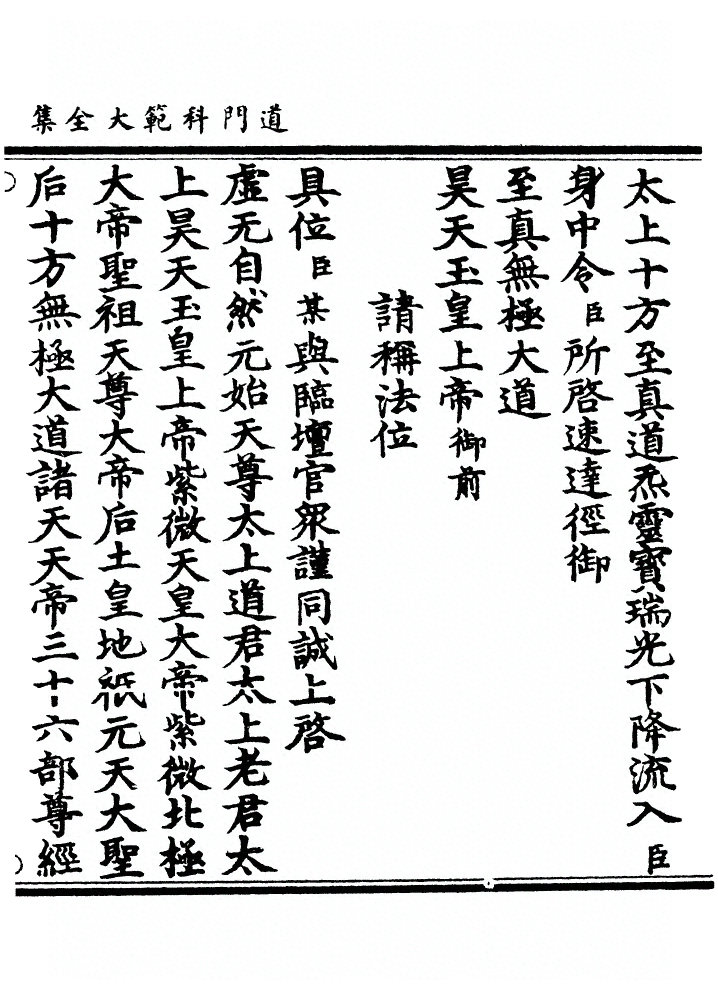 道門科範大全集
太上十方至真道炁靈寶瑞光下降流入臣
身中令臣所啓速達徑御
至真無極大道
昊天玉皇上帝御前
請稱法位
具位臣某與臨壇官眾謹同誠上啓
虛无自然元始天尊太上道君太上老君太
上昊天玉皇上帝紫微天皇大帝紫微北極
大帝聖祖天尊大帝后土皇地祇元天大聖
后十方無極大道諸天天帝三十六部尊經